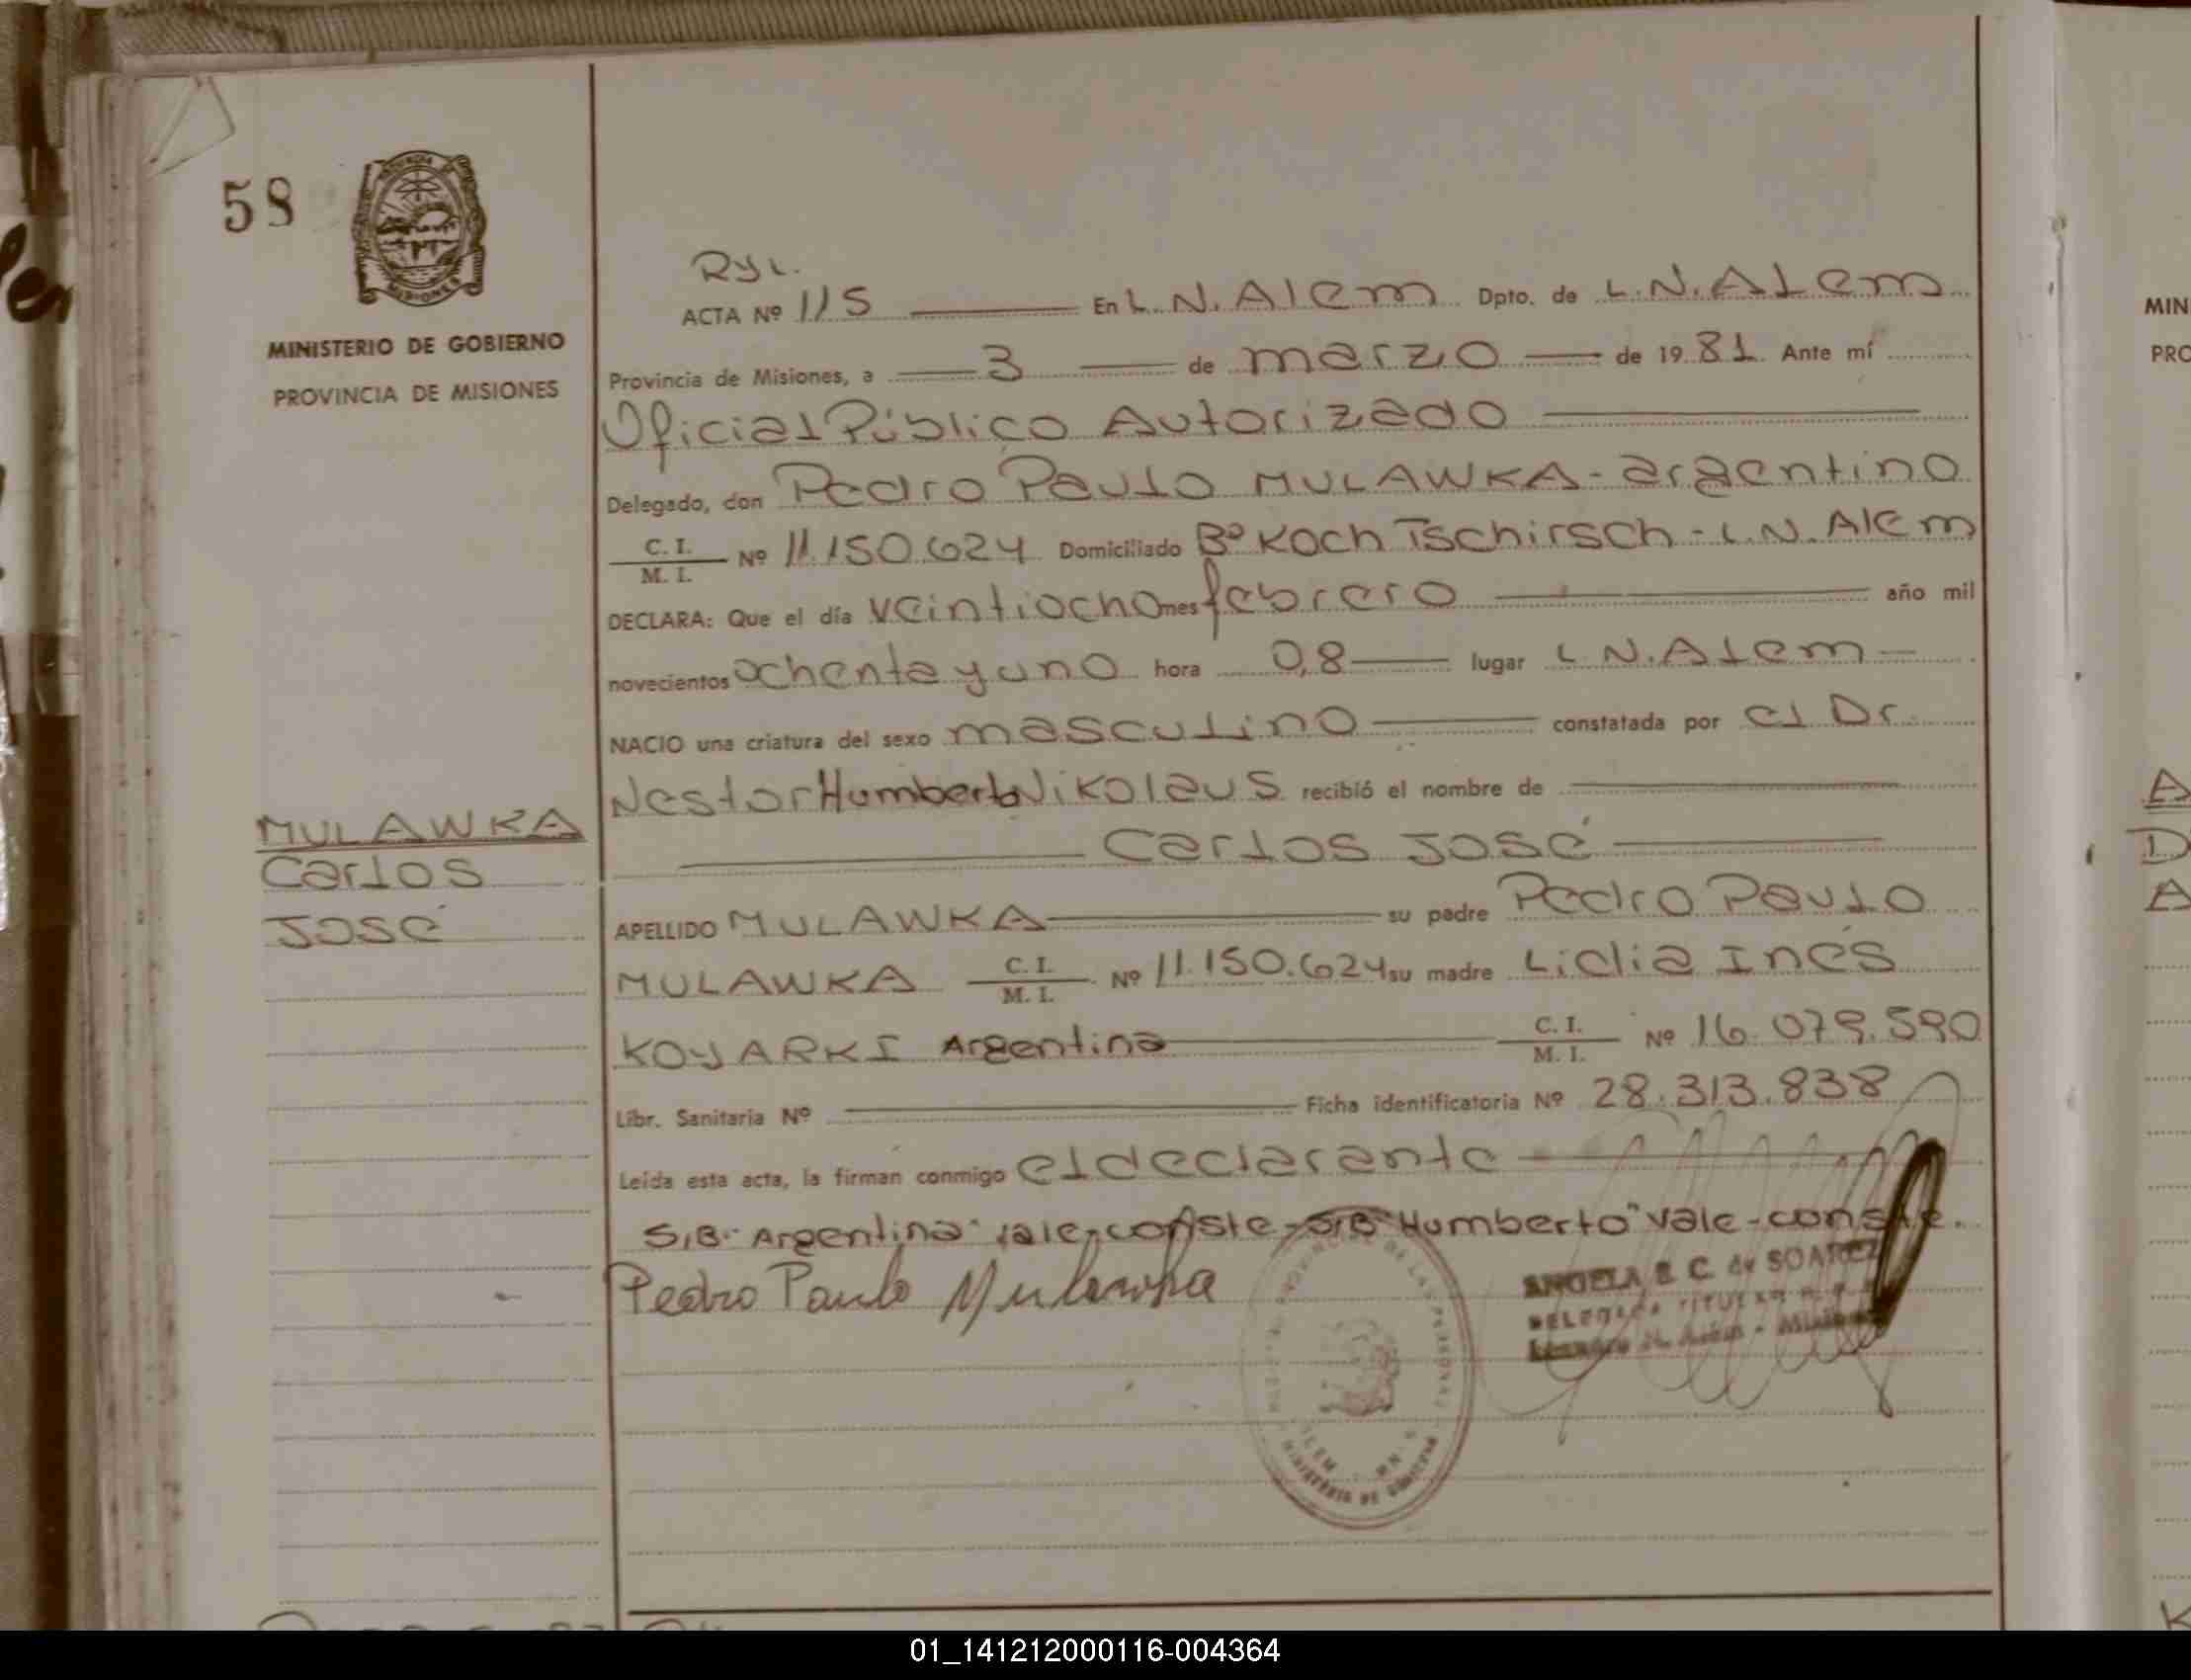 58
MINISTERIO DE GOBIERNO
PROVINCIA DE MISIONES
MULAWKA
Carlos
José
Ryl.
ACTA Nº 115 En L.N.Alem Dpto. de L.N.Alem
Provincia de Misiones, a 3 de marzo de 1981 Ante mí
Oficial Público Autorizado
Delegado, don Pedro Paulo MULAWKA - argentino
C. I. / M. I. Nº 11.150.624 Domiciliado Bº Koch Tschirsch - L.N.Alem
DECLARA: Que el día veintiocho mes febrero año mil
novecientos ochenta y uno hora 0,8 lugar L.N.Alem
NACIO una criatura del sexo masculino constatada por el Dr.
Nestor Humberto Nikolaus recibió el nombre de
Carlos José
APELLIDO MULAWKA su padre Pedro Paulo
MULAWKA C. I. / M. I. Nº 11.150.624 su madre Lidia Inés
KOYARKI Argentina C. I. / M. I. Nº 16.079.590
Libr. Sanitaria Nº Ficha identificatoria Nº 28.313.838
Leída esta acta, la firman conmigo el declarante
S,B." Argentina" vale-conste-S,B "Humberto" vale-conste.
Pedro Paulo Mulawka
ANGELA E. C. de SOAREZ
DELEGADA TITULAR
Leandro N. Alem - Misiones
MINISTERIO DE GOBIERNO
MIN
PRO
A
D
A
01_141212000116-004364